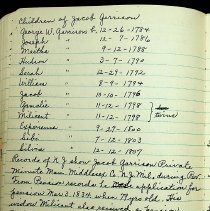 Children of Jacob Garrison
George W. Garrison b. 12-26-1784
Joseph " 12-7-1786
Martha " 9-12-1788
Hudson " 3-7-1790
Sarah " 12-29-1792
William " 8-9-1794
Jacob " 10-10-1796
Gamalie " 11-12-1798
Milicent " 11-12-1798 twins
Experience " 9-27-1800
Silvi " 7-12-1803
Silvina " 12-12-1807
Records of N.J. show Jacob Garrison Private
Minute Man Middlesex Co. N.J. Mil. during Rev.
From Pension records he application for
pension Mar. 3, 1834, when 79 yrs old. His
widow Milicent also received a pension